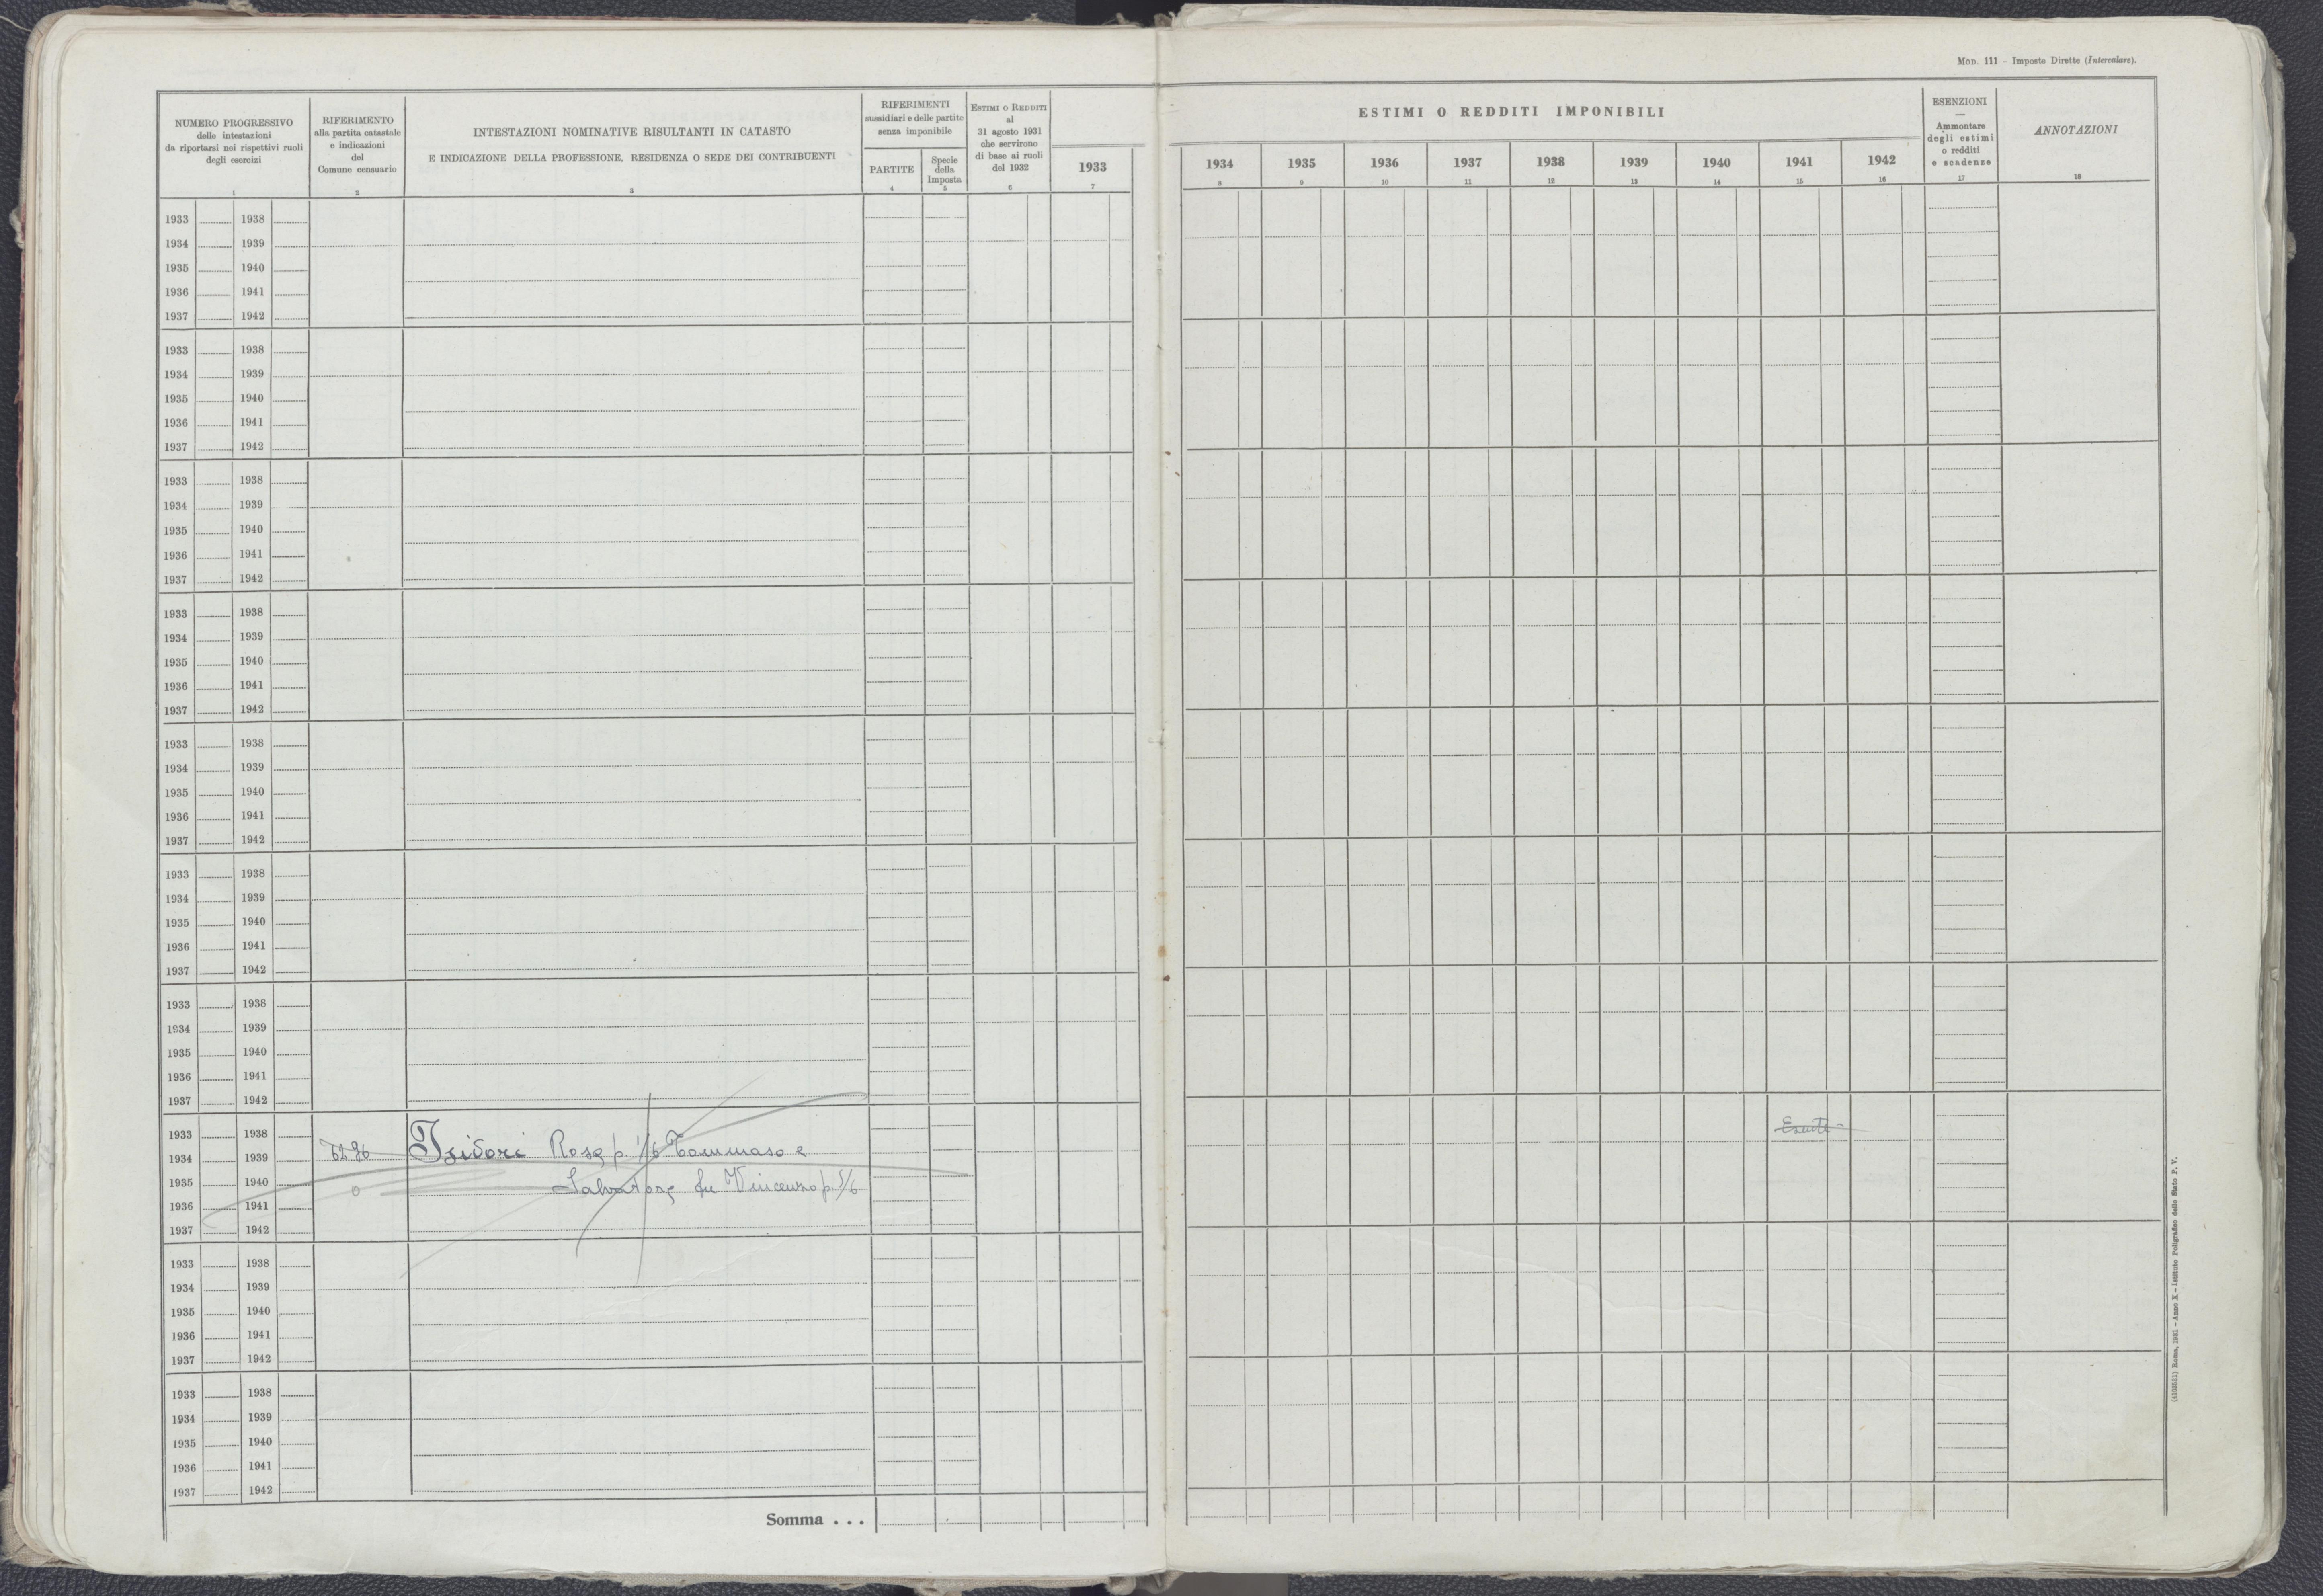 Mod. 111 – Imposte Dirette (Intercalare).
NUMERO PROGRESSIVO
delle intestazioni
da riportarsi nei rispettivi ruoli
degli esercizi
1
RIFERIMENTO
alla partita catastale
e indicazioni
del
Comune censuario
2
INTESTAZIONI NOMINATIVE RISULTANTI IN CATASTO
E INDICAZIONE DELLA PROFESSIONE, RESIDENZA O SEDE DEI CONTRIBUENTI
3
RIFERIMENTI
sussidiari e delle partite
senza imponibile
PARTITE
4
Specie
della
Imposta
5
Estimi o Redditi
al
31 agosto 1931
che servirono
di base ai ruoli
del 1932
6
1933
7
ESTIMI O REDDITI IMPONIBILI
1934
8
1935
9
1936
10
1937
11
1938
12
1939
13
1940
14
1941
15
1942
16
ESENZIONI
—
Ammontare
degli estimi
o redditi
e scadenze
17
ANNOTAZIONI
18
1933 1938
1934 1939
1935 1940
1936 1941
1937 1942
1933 1938
1934 1939
1935 1940
1936 1941
1937 1942
1933 1938
1934 1939
1935 1940
1936 1941
1937 1942
1933 1938
1934 1939
1935 1940
1936 1941
1937 1942
1933 1938
1934 1939
1935 1940
1936 1941
1937 1942
1933 1938
1934 1939
1935 1940
1936 1941
1937 1942
1933 1938
1934 1939
1935 1940
1936 1941
1937 1942
1933 1938
1934 1939 Isidori Rosa p. 1/6 Tommaso e
1935 1940 Salvatore fu Vincenzo p. 5/6
1936 1941
1937 1942
1933 1938
1934 1939
1935 1940
1936 1941
1937 1942
1933 1938
1934 1939
1935 1940
1936 1941
1937 1942
Somma . . .
Roma, 1931 – Anno X – Istituto Poligrafico dello Stato P. V.